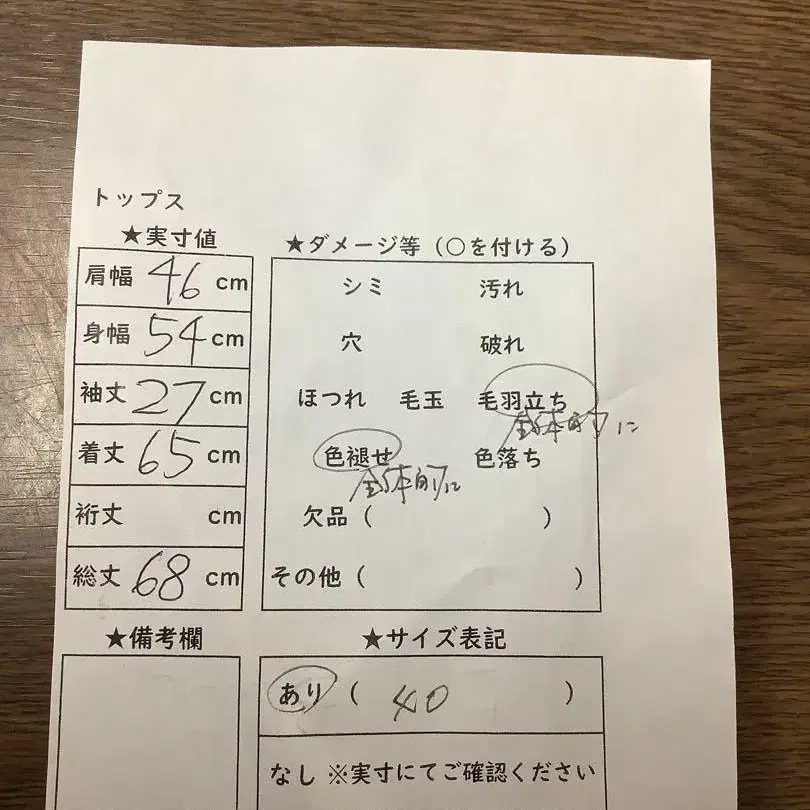 トップス
★実寸値
肩幅 46 cm
身幅 54 cm
袖丈 27 cm
着丈 65 cm
裄丈 cm
総丈 68 cm
★ダメージ等（○を付ける）
シミ 汚れ
穴 破れ
ほつれ 毛玉 毛羽立ち
全体的に
色褪せ 色落ち
全体的に
欠品（ ）
その他（ ）
★備考欄
★サイズ表記
あり（ 40 ）
なし ※実寸にてご確認ください